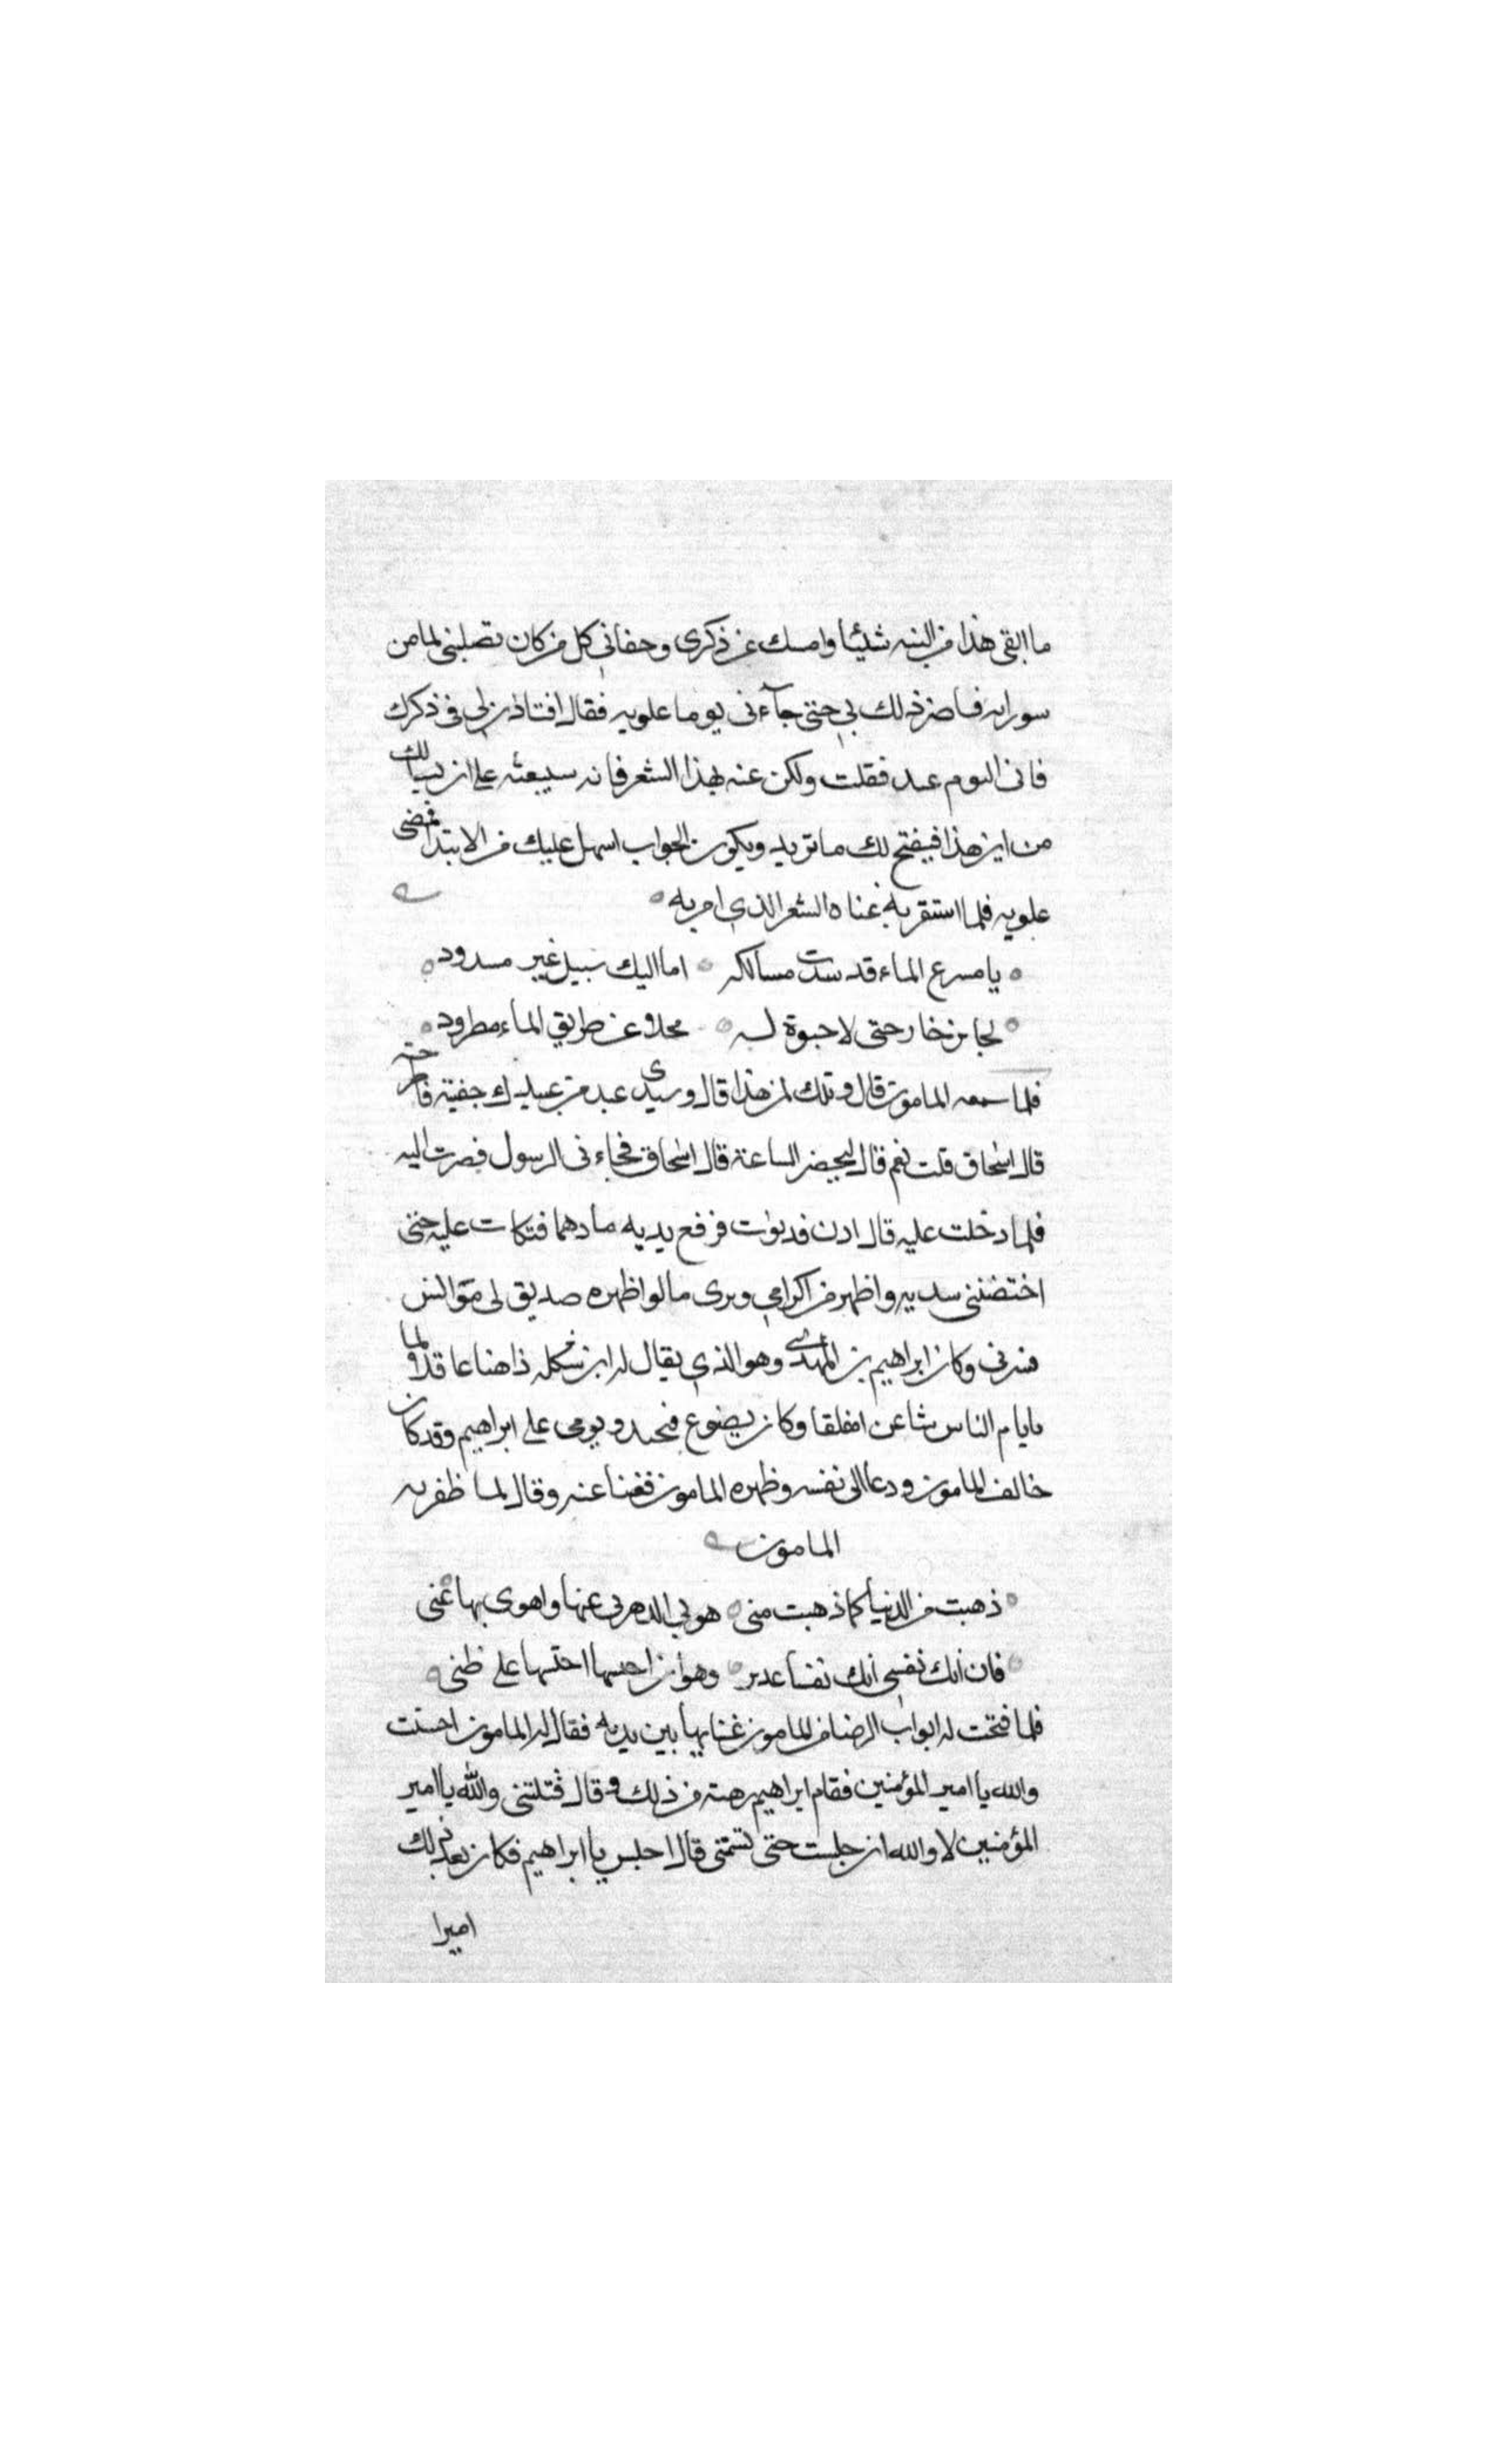 ما ابقى هذا من التيه شيئا وامسك عن ذكرى وجفانى كل من كان يصلنى لما من
سورايه فاضر ذلك بى حتى جاءنى يوما علويه فقال افتاذن لى فى ذكرك
فانى اليوم عنده فقلت ولكن غنه بهذا الشعر فانه سيبعثه على ان يسالك
من اين هذا فيفتح لك ما تريد ويكون الجواب اسهل عليك من الابتدا فمضى
علويه فلما استقر به غناه الشعر الذى امر به
يا مسرع الماء قد سدت مسالكه اما اليك سبيل غير مسدود
لحائز حار حتى لا حيوة له محلاو عن طريق الماء مطرود
فلما سمعه المامون قال ويلك لمن هذا قال وسيدى عبد من عبيدك جفيته فاطرحته
قال اسحاق قلت نعم قال ليحضر الساعة قال اسحاق فجاءنى الرسول فصرت اليه
فلما دخلت عليه قال ادن فدنوت فرفع يديه مادهما فتكات عليه حتى
اختضننى بيديه واظهر من اكرامى وبرى ما لو اظهره صديق لى موانس
فسرنى وكان ابراهيم بن المهدى وهو الذى يقال له ابن شكله داهنا عاقلا ولما
بايام الناس شاعرا مفلقا وكان يصوغ فيجيد ويومى على ابراهيم وقد كان
خالف المامون ودعا الى نفسه وظهره المامون فعفا عنه وقال لما ظفر به
المامون
ذهبت من الدنيا كما ذهبت منى هوى الدهر بى عنها واهوى بها عنى
فان ابك نفسى ابك نفسا عديد وهو ان احبسها احتسبها على ظنى
فلما فتحت له ابواب الرضا من المامون غنا بها بين يديه فقال له المامون احسنت
والله يا امير المؤمنين فقام ابراهيم رهبته من ذلك وقال قتلتنى والله يا امير
المؤمنين لا والله ان جلست حتى تسمتنى قال اجلس يا ابراهيم فكان بعد ذلك
اميرا